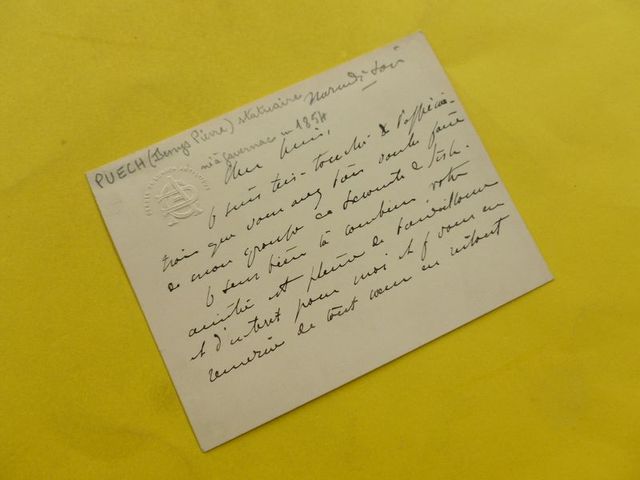 PUECH (Denys Pierre) statuaire
né à Gavernac en 1854
Mercredi soir
Cher Ami,
Je suis très touché de l'appécia-
tion que vous avez bien voulu faire
de mon groupe de Leconte de Lisle.
Je sens bien là combien votre
amitié est pleine de bienveillance
et d'interet pour moi et je vous en
remercie de tout cœur en m'étant